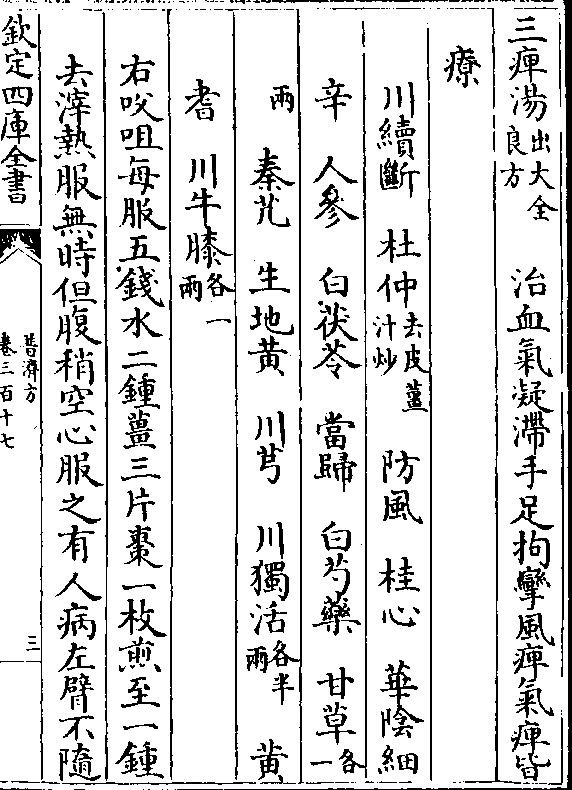 三痺湯出大全良方　治血氣凝滯手足拘攣風痺氣痺皆
療
川續斷　杜仲去皮薑汁炒　防風　桂心　華陰細
辛　人參　白茯苓　當歸　白芍藥　甘草各一
兩　秦艽　生地黃　川芎　川獨活各半兩　黃
耆　川牛膝各一兩
右㕮咀每服五錢水二鍾薑三片棗一枚煎至一鍾
去滓熱服無時但腹稍空心服之有人病左臂不隨
欽定四庫全書
普濟方
卷三百十七
三